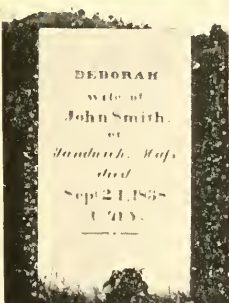 DEBORAH
wife of
John Smith.
of
Sandwich, Mass
died
Sept 21, 1838